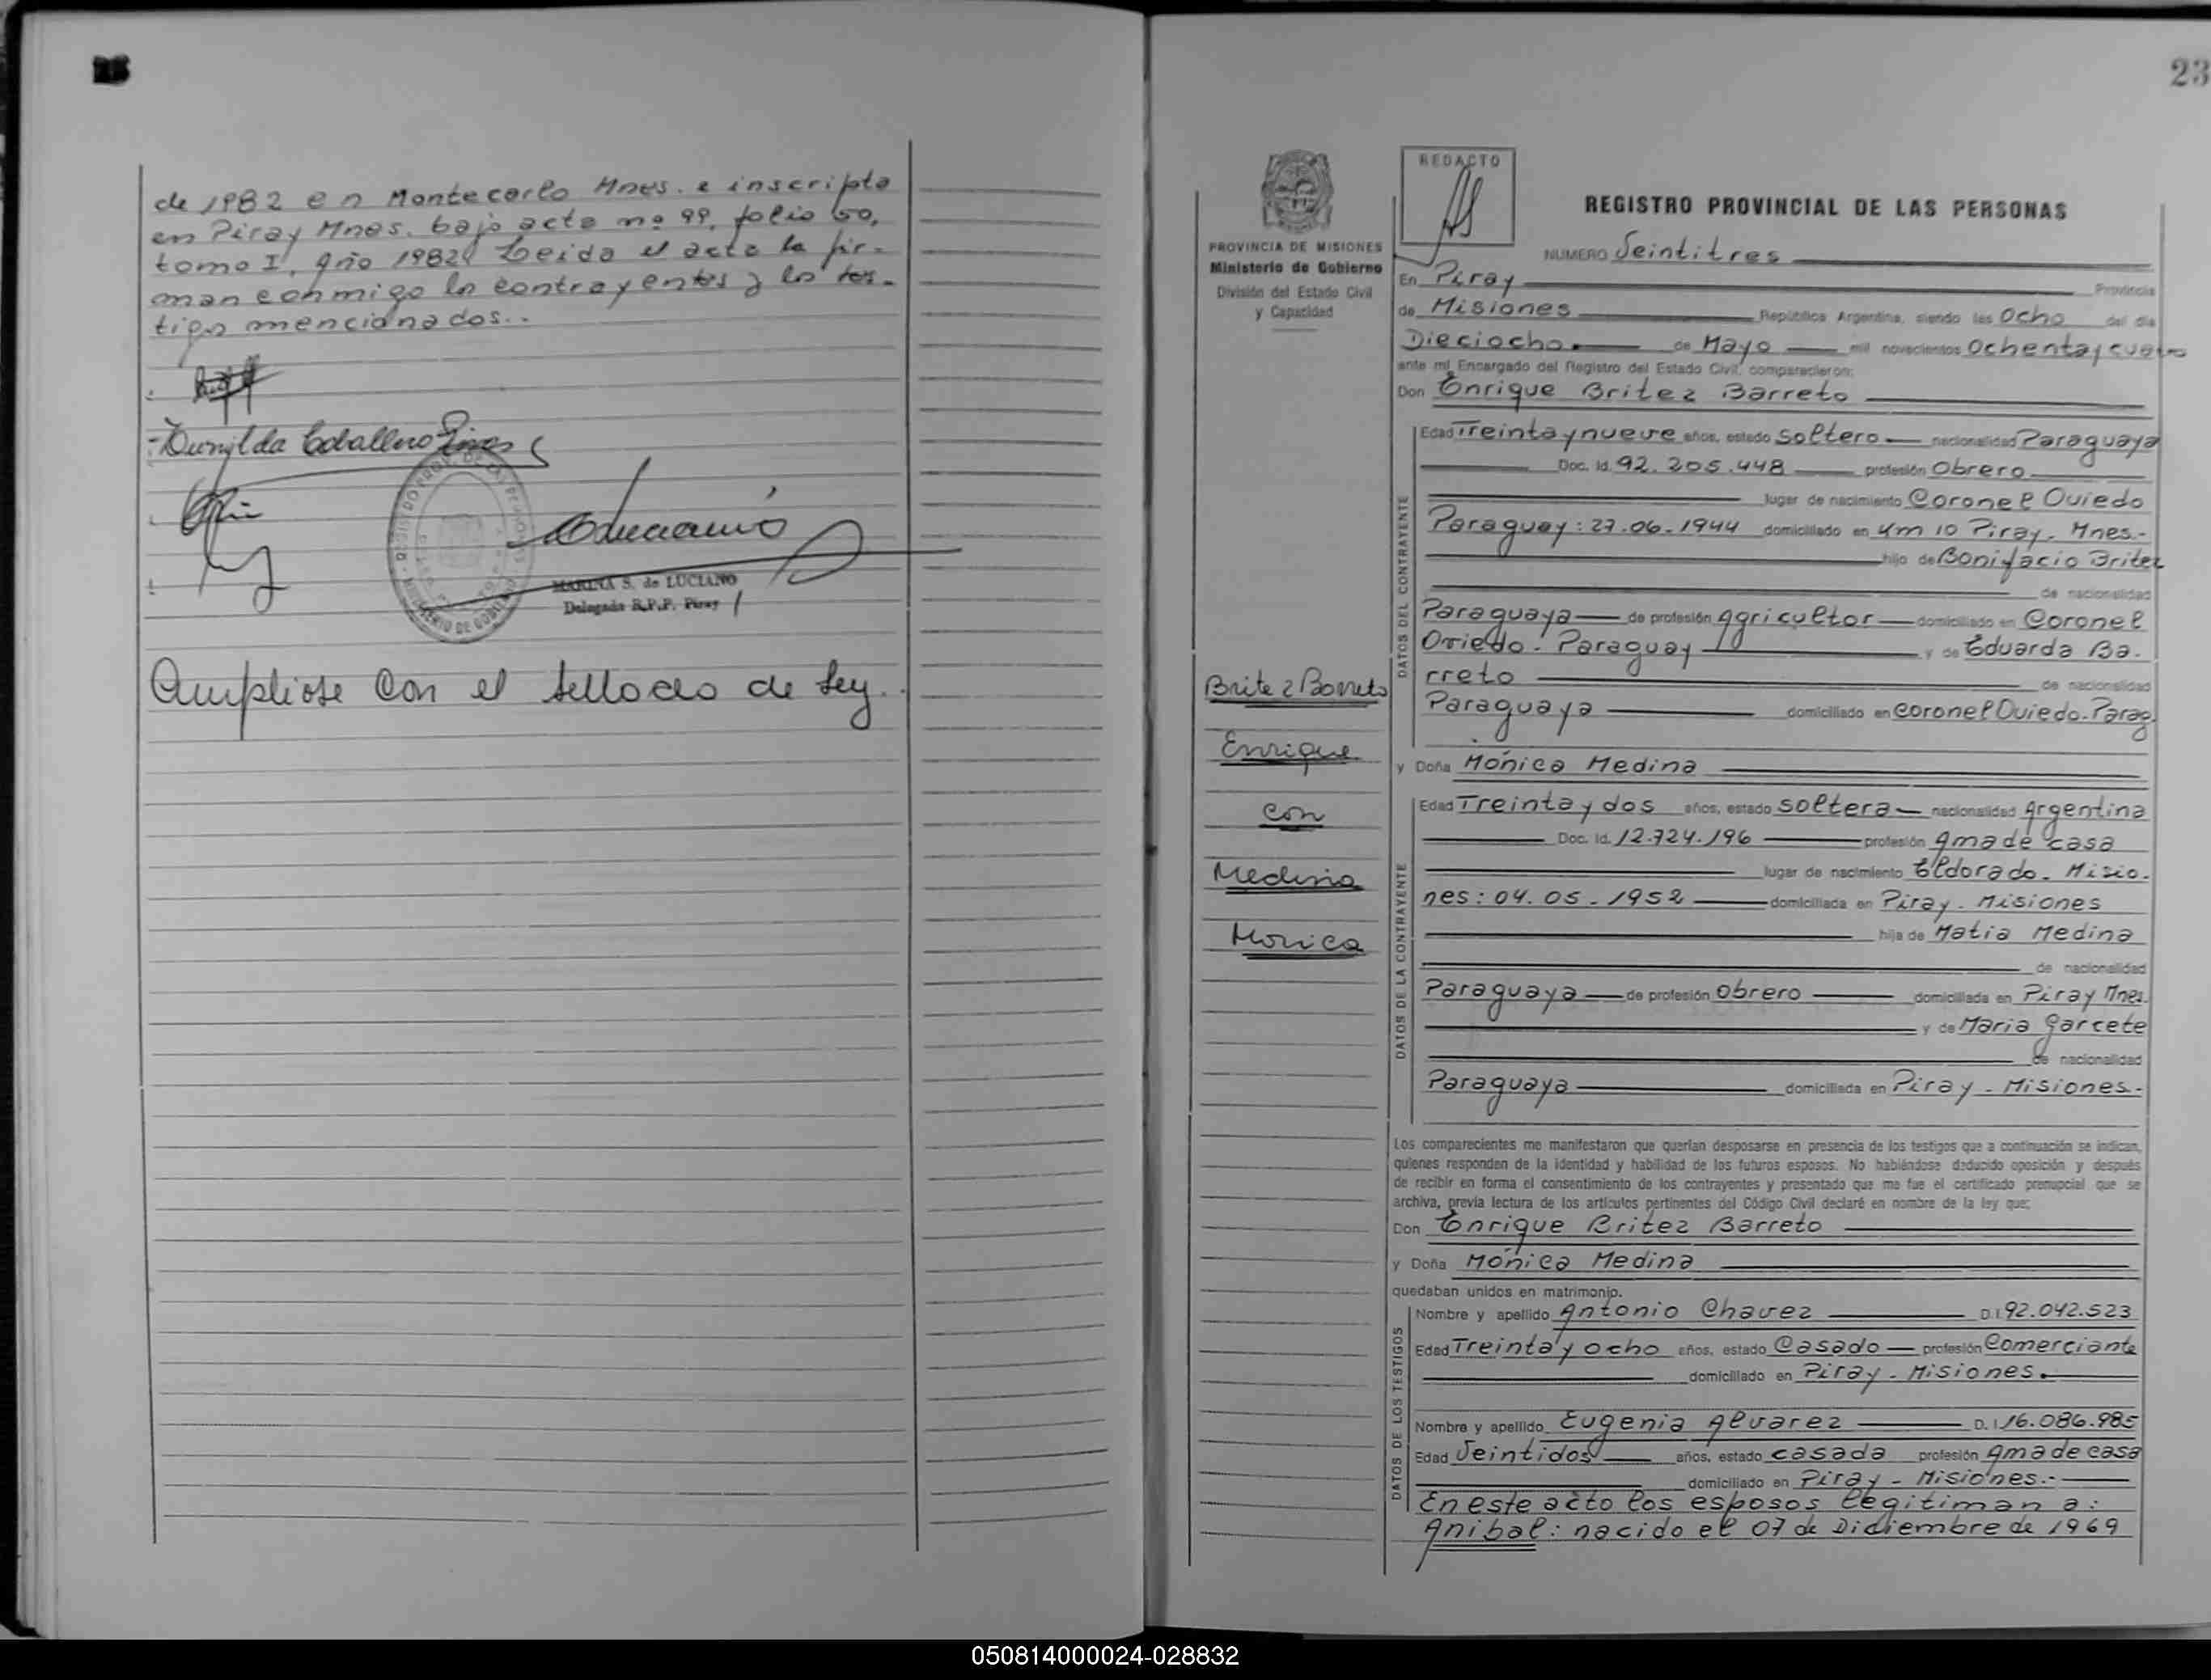 de 1982 en Montecarlo Mnes. e inscripta
en Piray Mnes. bajo acta nº 99, folio 50,
tomo I, año 1982. Leida el acta la fir-
man conmigo los contrayentes y los tes-
tigos mencionados..
Dunilda Caballero
MARINA S. de LUCIANO
Delegada R.P.P. Piray
Ampliose con el sellado de Ley.
23
PROVINCIA DE MISIONES
Ministerio de Gobierno
División del Estado Civil
y Capacidad
Britez Barreto
Enrique
con
Medina
Monica
REDACTO
REGISTRO PROVINCIAL DE LAS PERSONAS
NUMERO Veintitres
En Piray Provincia
de Misiones República Argentina, siendo las Ocho del dia
Dieciocho de Mayo mil novecientos Ochenta y cuatro
ante mi Encargado del Registro del Estado Civil, comparecieron:
Don Enrique Britez Barreto
DATOS DEL CONTRAYENTE
Edad Treinta y nueve años, estado Soltero nacionalidad Paraguaya
Doc. Id. 92.205.448 profesión Obrero
lugar de nacimiento Coronel Oviedo
Paraguay: 27.06.1944 domiciliado en Km 10 Piray. Mnes.-
hijo de Bonifacio Britez
de nacionalidad
Paraguaya de profesión Agricultor domiciliado en Coronel
Oviedo. Paraguay y de Eduarda Ba.
rreto de nacionalidad
Paraguaya domiciliado en Coronel Oviedo-Parag.
y Doña Mónica Medina
DATOS DE LA CONTRAYENTE
Edad Treinta y dos años, estado Soltera nacionalidad Argentina
Doc. Id. 12.724.196 profesión Ama de casa
lugar de nacimiento Eldorado. Misio.
nes: 04.05.1952 domiciliada en Piray. Misiones
hija de Matia Medina
de nacionalidad
Paraguaya de profesión Obrero domiciliada en Piray Mnes.
y de Maria Garcete
de nacionalidad
Paraguaya domiciliada en Piray - Misiones.-
Los comparecientes me manifestaron que querían desposarse en presencia de los testigos que a continuación se indican,
quienes responden de la identidad y habilidad de los futuros esposos. No habiéndose deducido oposición y después
de recibir en forma el consentimiento de los contrayentes y presentado que me fue el certificado prenupcial que se
archiva, previa lectura de los artículos pertinentes del Código Civil declaré en nombre de la ley que:
Don Enrique Britez Barreto
y Doña Mónica Medina
quedaban unidos en matrimonio.
DATOS DE LOS TESTIGOS
Nombre y apellido Antonio Chavez D.I. 92.042.523
Edad Treinta y ocho años, estado Casado profesión Comerciante
domiciliado en Piray - Misiones.
Nombre y apellido Eugenia Alvarez D.I. 16.086.985
Edad Veintidos años, estado casada profesión Ama de casa
domiciliado en Piray - Misiones.-
En este acto los esposos legitiman a:
Anibal: nacido el 07 de Diciembre de 1969
050814000024-028832